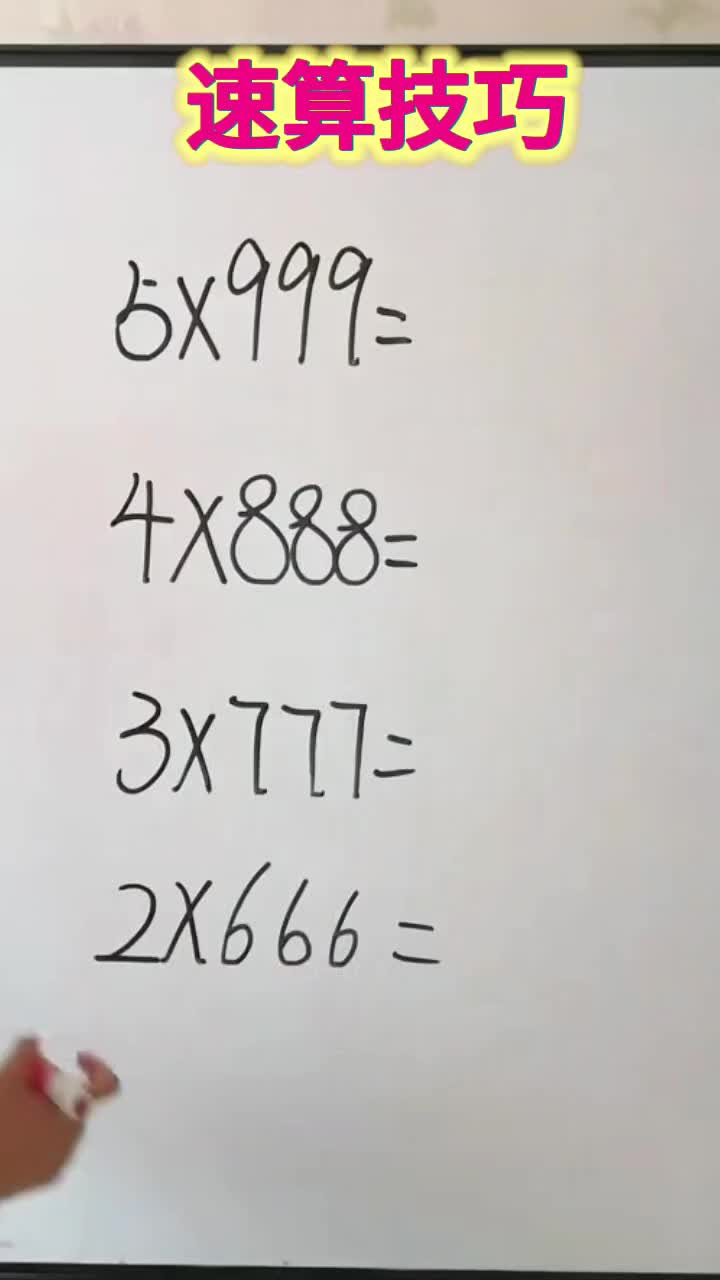 速算技巧
5×999=
4×888=
3×777=
2×666=